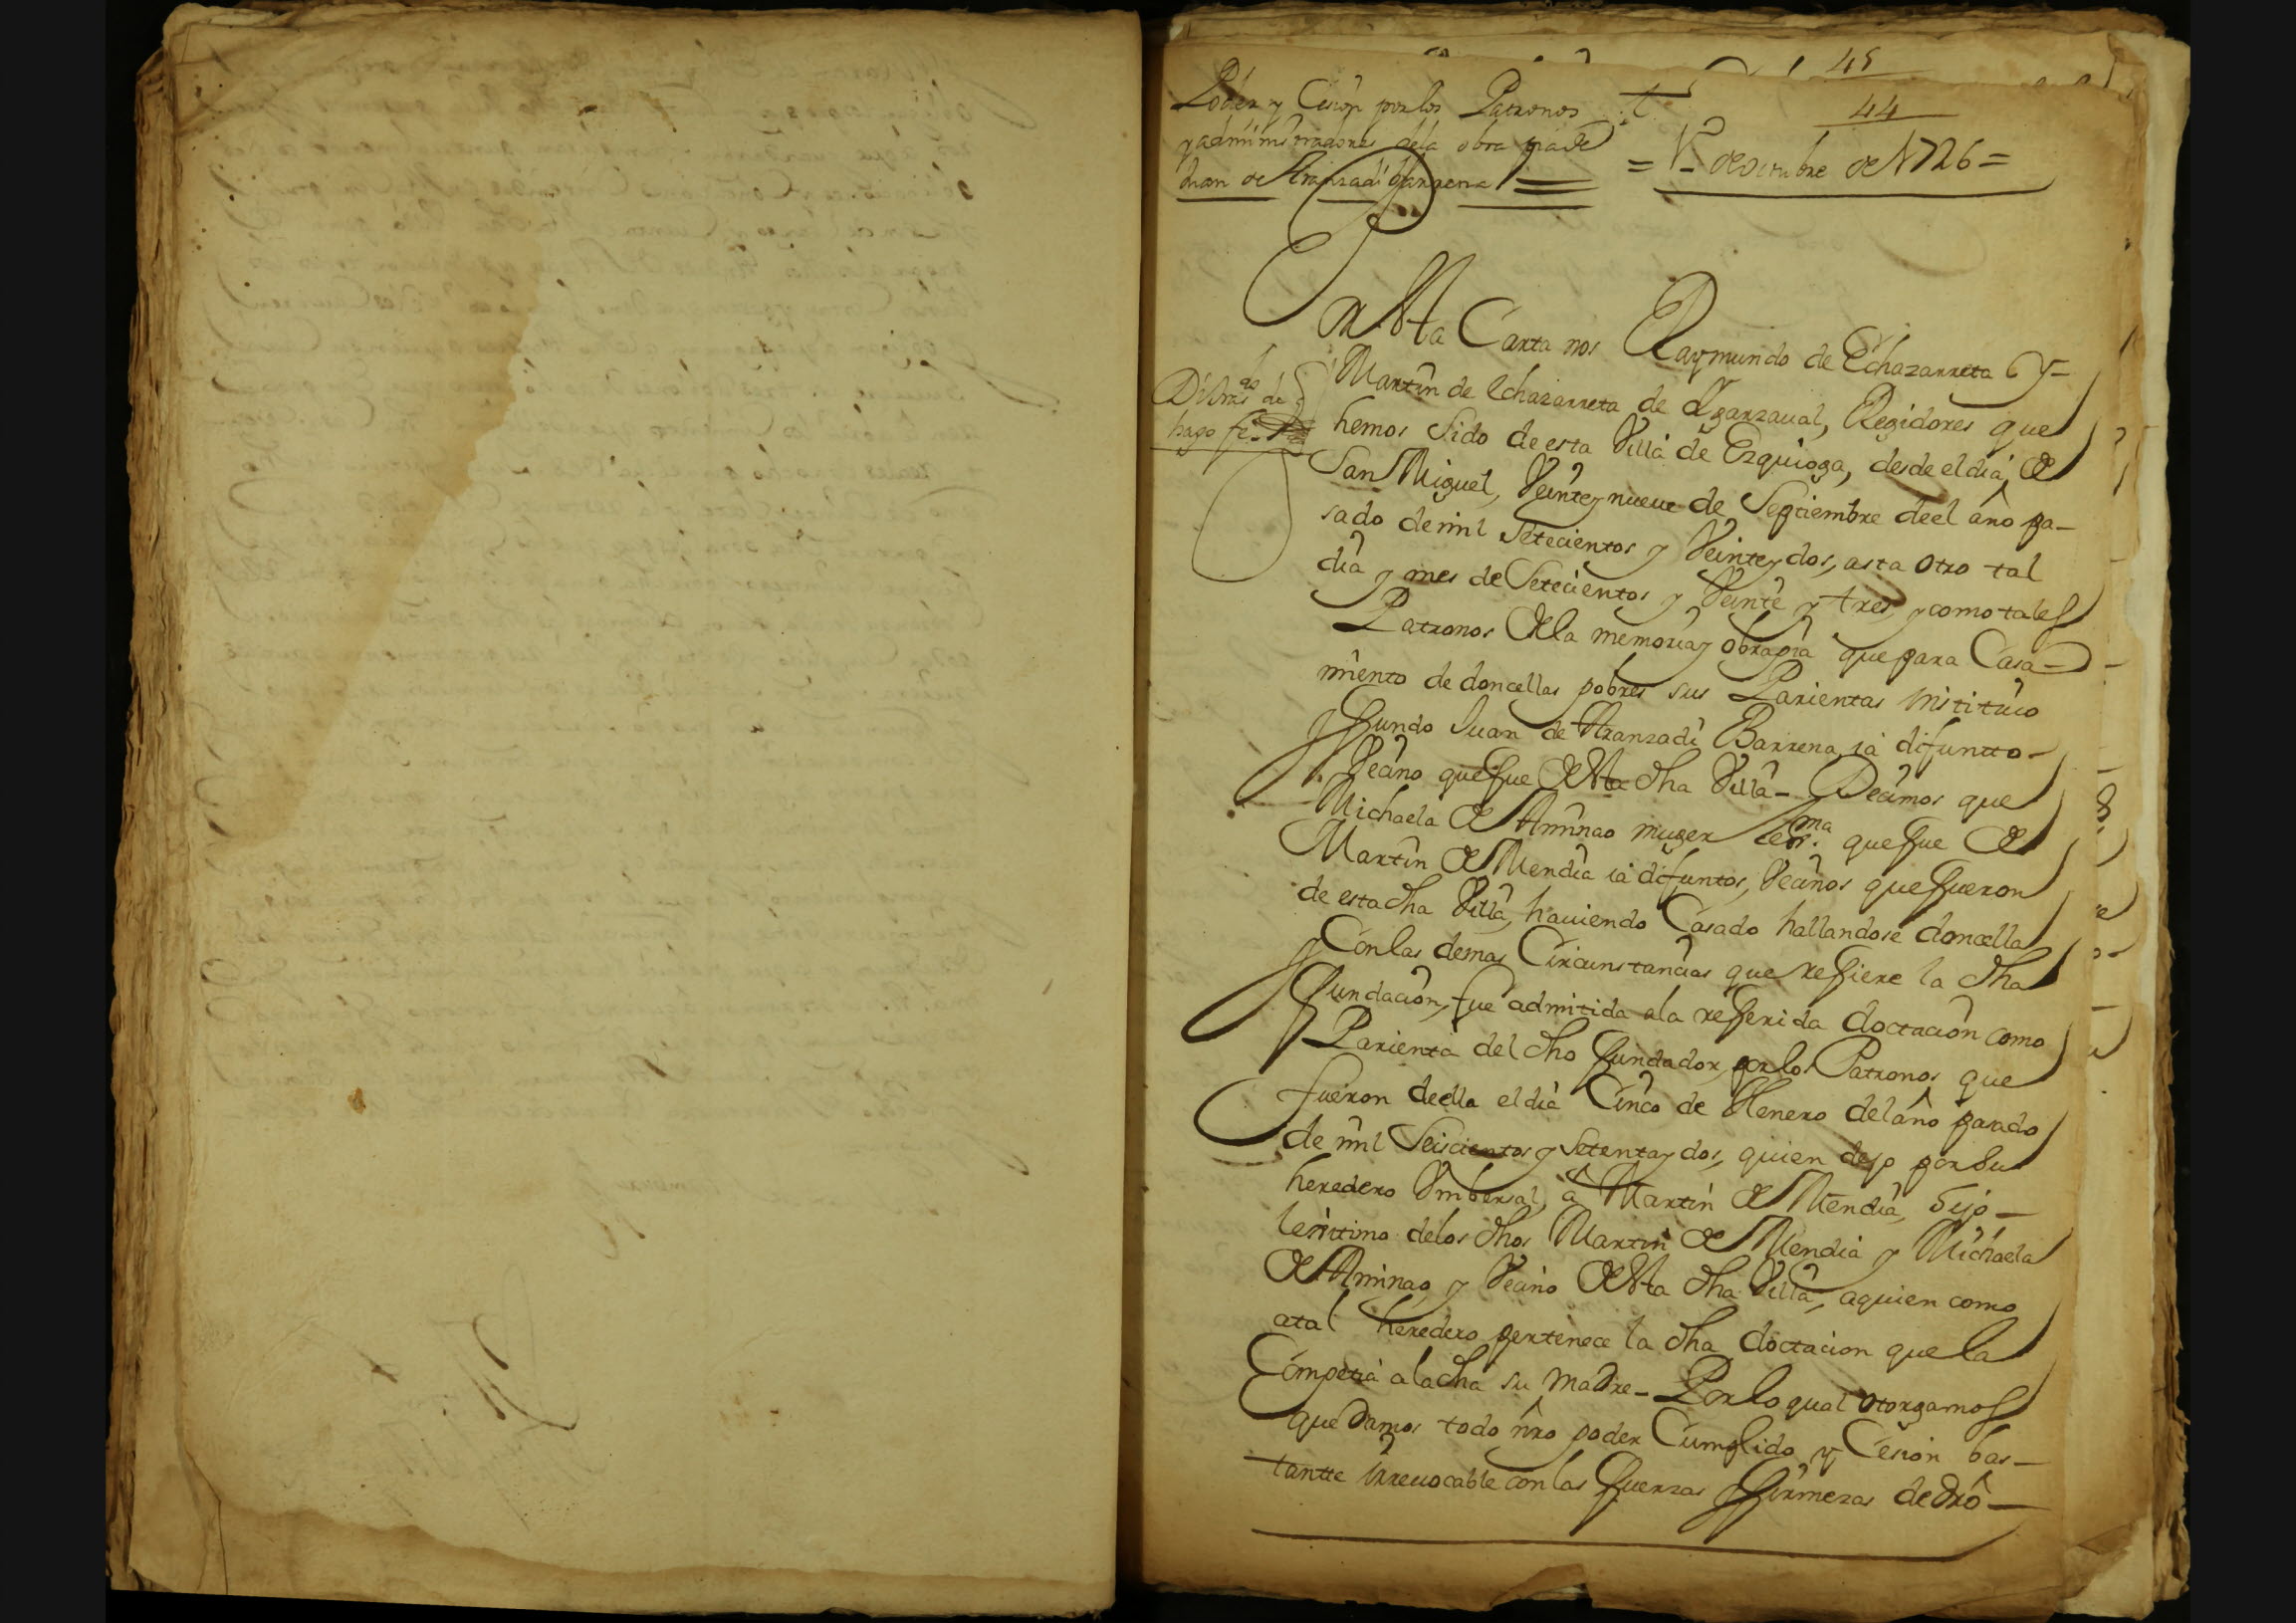 45
44
Poder y Cesion por los Patronos
y administradores dela obra pia de
Juan de Aranzadi barrena
t
= de octubre de 1726 =
En esta Carta nos Raymundo de Echazarreta y
Martin de Echazarreta de Ygarzaual, Regidores que
hemos sido de esta Villa de Ezquioga, desde el dia de
San Miguel, Veinte y nueue de Septiembre deel año pa-
sado de mil setecientos y Veinte y dos, asta otro tal
dia y mes de Setecientos y Veinte y tres, y como tales
Patronos de la memoria y obrapia que para Casa-
miento de doncellas pobres sus Parientas instituio
y fundo Juan de Aranzadi Barrena, ia difuntto-
Vecino que fue de esta dha Villa - Decimos que
Michaela de Aminao muger lexma. que fue de
Martin de Mendia ia difuntos, Vecinos que fueron
de esta dha Villa, hauiendo Casado hallandose doncella
y Con las demas Circunstancias que refiere la dha
fundacion, fue admitida ala referida doctacion como
Parienta del dho fundador, por los Patronos que
fueron deella el dia Cinco de Henero del año pasado
de mil Seiscientos y Setenta y dos, quien dejo por su
heredero Vnibersal, a Martin de Mendia, hijo-
lexitimo delos dhos Martin de Mendia y Michaela
de Aminao, y Vecino de esta dha Villa, aquien como
atal heredero pertenece la dha doctacion que la
Competia ala dha su madre - Por lo qual otorgamos
que Damos todo nro poder Cumplido, y Cesion bas-
tantte irreuocable con las fuerzas y firmezas de dro-
Di tras.do de
hago fe